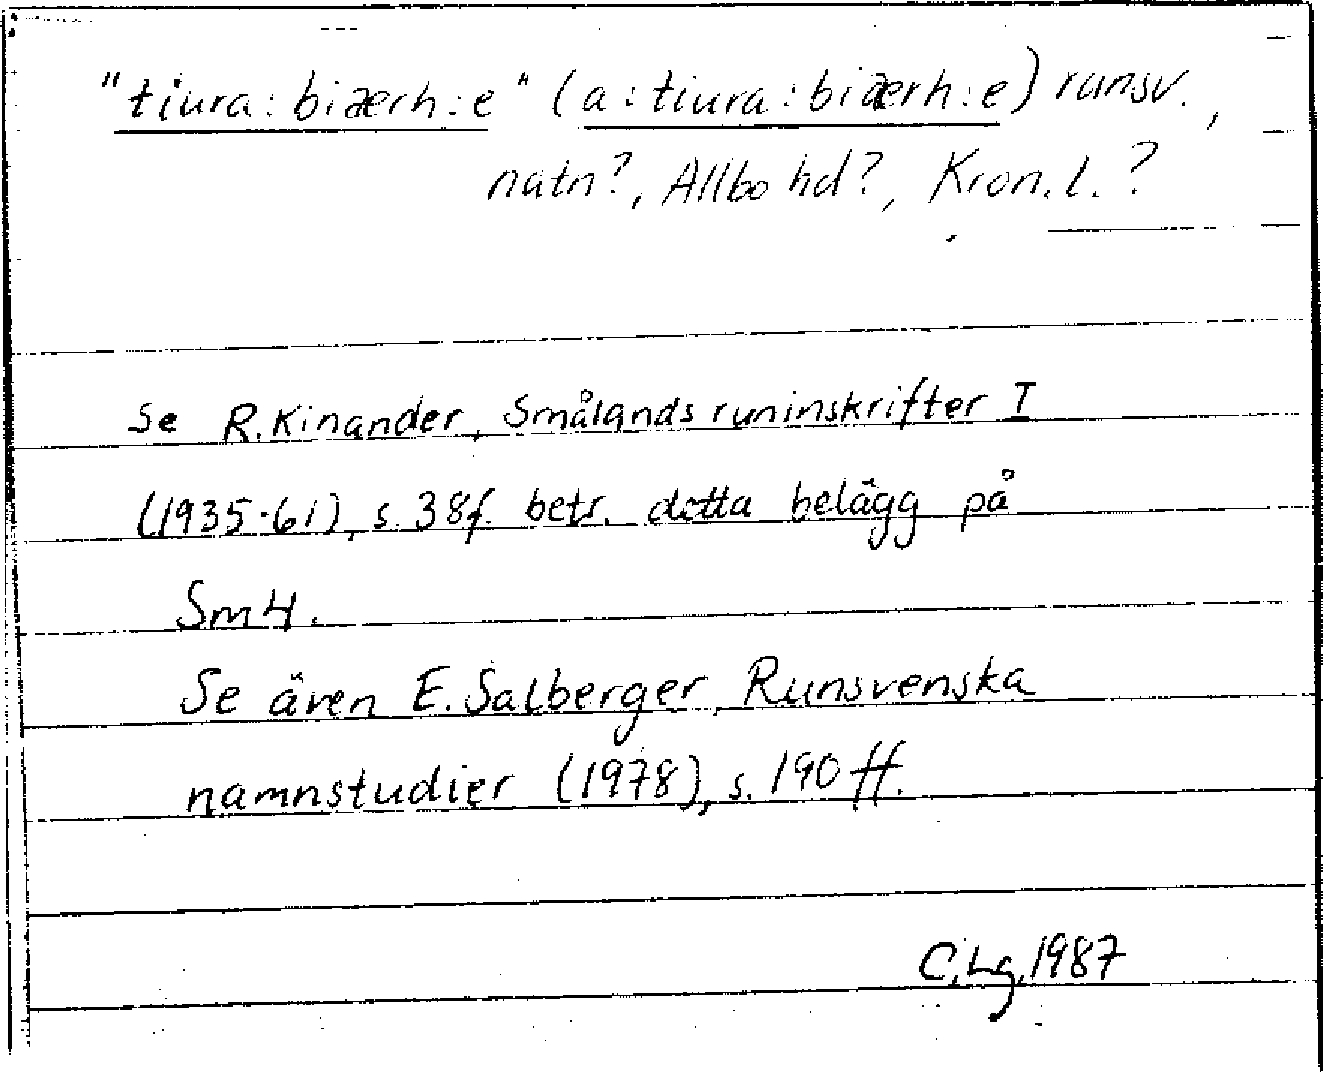 "tiura : biærh : e" (a : tiura : biærh : e) runsv.,
natn?, Allbo hd?, Kron. l. ?
Se R. Kinander, Smålands runinskrifter I
(1935-61), s. 38f. betr. detta belägg på
Sm 4.
Se även E. Salberger, Runsvenska
namnstudier (1978), s. 190 ff.
C. Lg, 1987